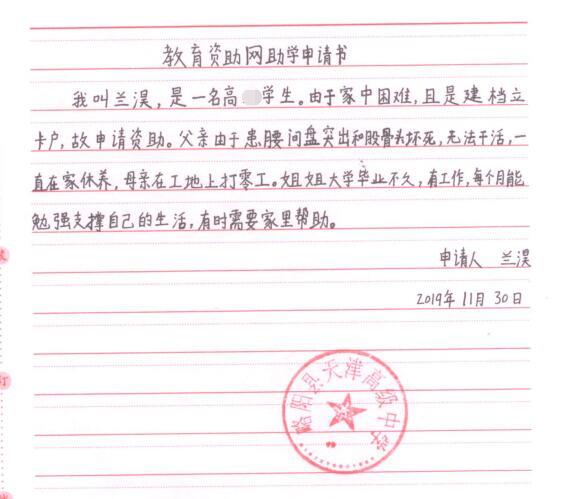 教育资助网助学申请书
我叫兰淏，是一名高 学生。由于家中困难，且是建档立
卡户，故申请资助。父亲由于患腰间盘突出和股骨头坏死，无法干活，一
直在家休养，母亲在工地上打零工。姐姐大学毕业不久，有工作，每个月能
勉强支撑自己的生活，有时需要家里帮助。
申请人 兰淏
2019年11月30日
略阳县天津高级中学
订